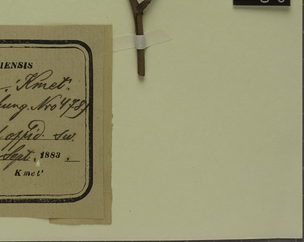 IENSIS
Kmet'.
ung. No 4789
oppid. sw.
Sept. 1883.
Kmet'